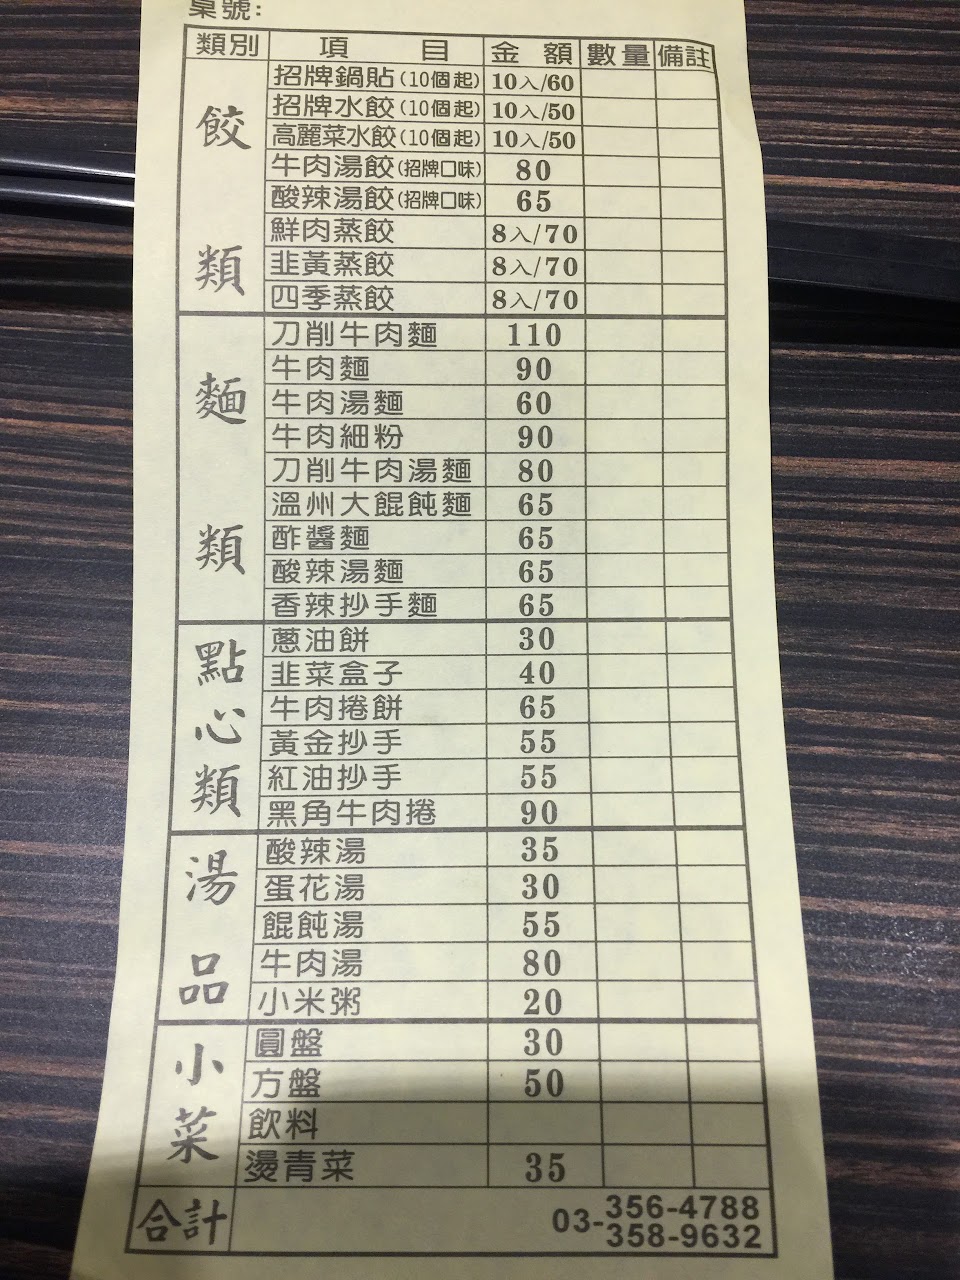 桌號:
類別 項目 金額 數量 備註
餃類
招牌鍋貼(10個起) 10入/60
招牌水餃(10個起) 10入/50
高麗菜水餃(10個起) 10入/50
牛肉湯餃(招牌口味) 80
酸辣湯餃(招牌口味) 65
鮮肉蒸餃 8入/70
韭黃蒸餃 8入/70
四季蒸餃 8入/70
麵類
刀削牛肉麵 110
牛肉麵 90
牛肉湯麵 60
牛肉細粉 90
刀削牛肉湯麵 80
溫州大餛飩麵 65
酢醬麵 65
酸辣湯麵 65
香辣抄手麵 65
點心類
蔥油餅 30
韭菜盒子 40
牛肉捲餅 65
黃金抄手 55
紅油抄手 55
黑角牛肉捲 90
湯品
酸辣湯 35
蛋花湯 30
餛飩湯 55
牛肉湯 80
小米粥 20
小菜
圓盤 30
方盤 50
飲料
燙青菜 35
合計 03-356-4788
358-9632